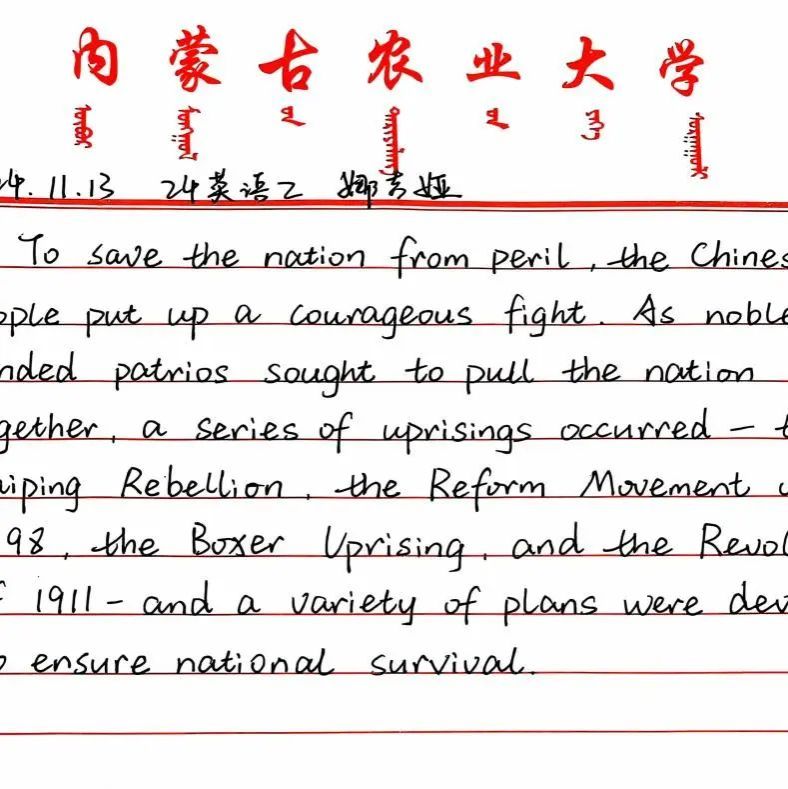 内蒙古农业大学
24.11.13 24英语2 娜吉娅
To save the nation from peril, the Chines
ople put up a courageous fight. As noble
nded patrios sought to pull the nation
gether, a series of uprisings occurred — t
iping Rebellion, the Reform Movement o
98, the Boxer Uprising, and the Revol
f 1911 - and a variety of plans were dev
o ensure national survival.